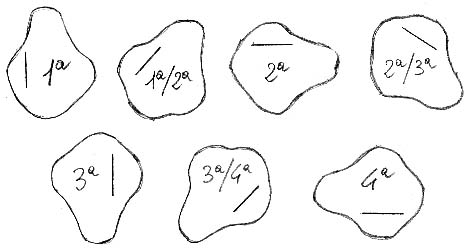 1ª
1ª/2ª
2ª
2ª/3ª
3ª
3ª/4ª
4ª